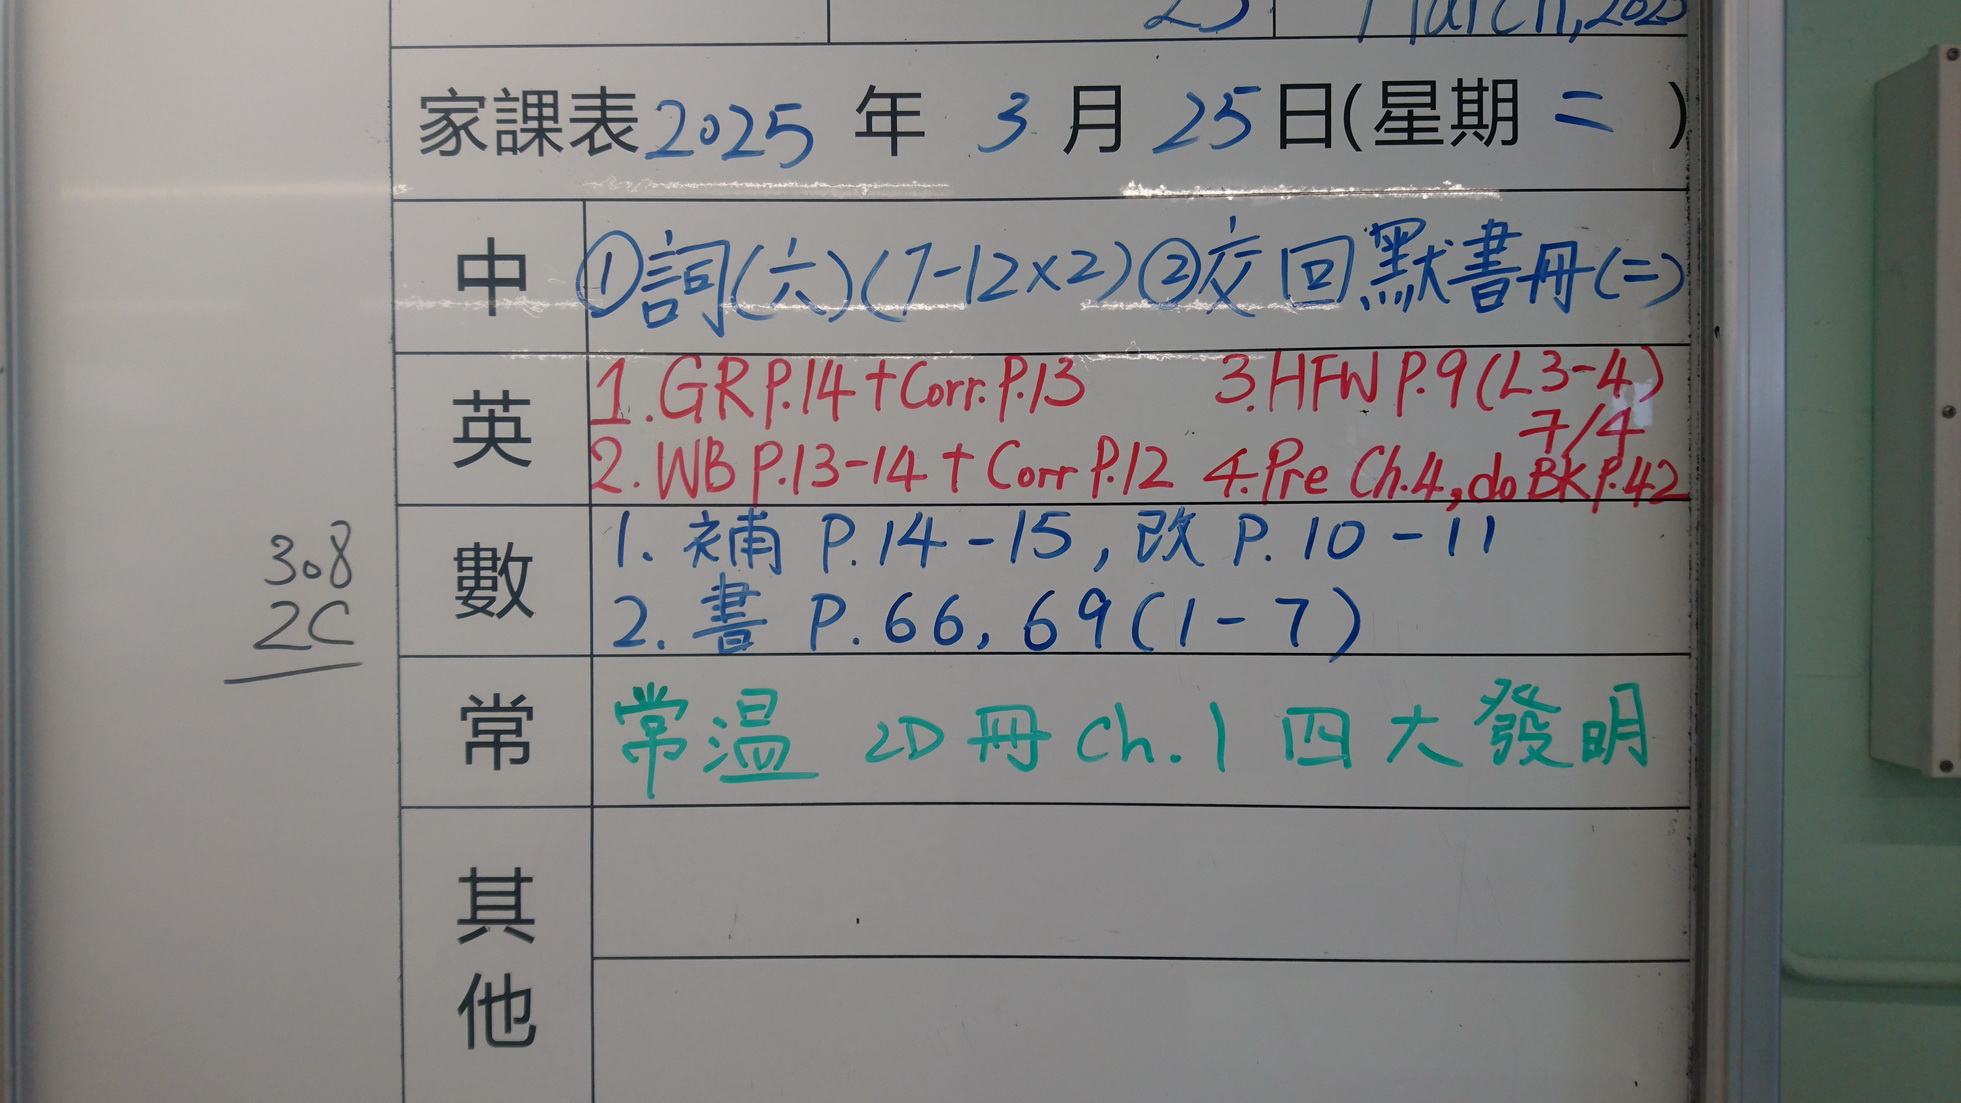 25 March, 2025
家課表 2025 年 3 月 25 日(星期 二 )
中 ①詞(六)(7-12×2)②交回默書冊(二)
英
1. GR P.14 + Corr. P.13
2. WB P.13-14 + Corr P.12
3. HFW P.9 (L3-4)
7/4
4. Pre Ch.4, do BK P.42
308
2C
數
1. 補 P.14-15, 改 P.10-11
2. 書 P.66, 69(1-7)
常 常温 2D冊 Ch.1 四大發明
其他